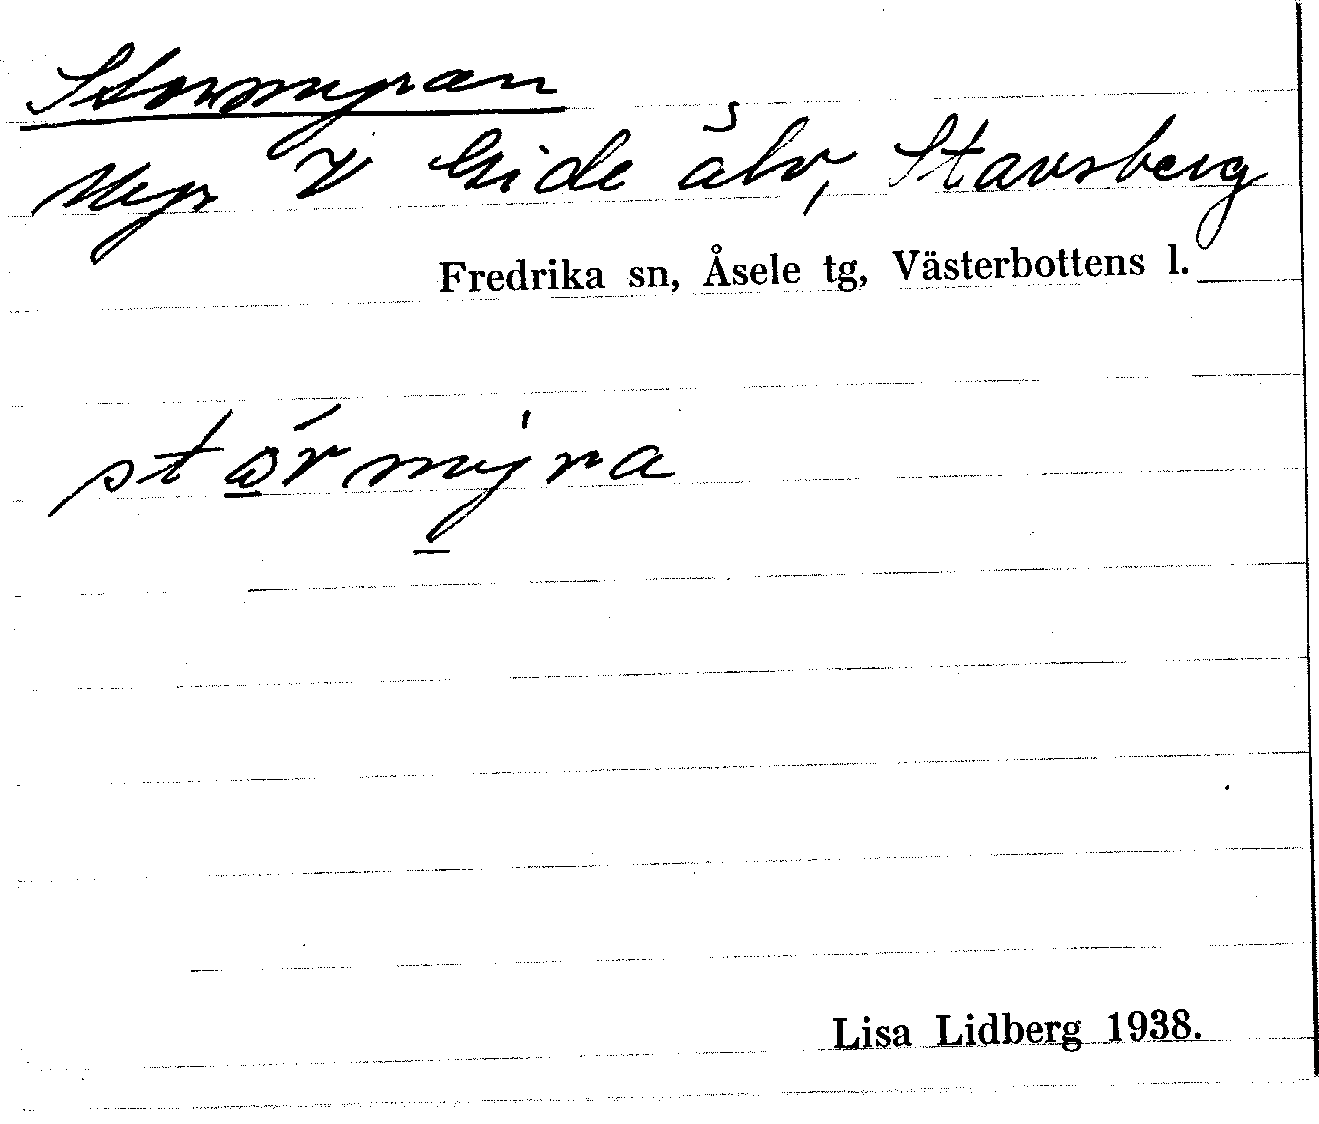 Stormyran
Myr V Gide älv, Stavsberg
Fredrika sn, Åsele tg, Västerbottens l.
stɷ̱́rmy̱̍ra
Lisa Lidberg 1938.